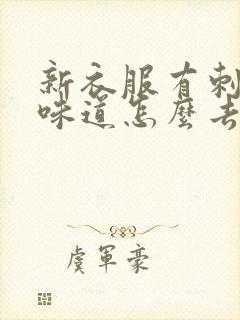 新衣服有刺
味道怎麼去
虞軍豪